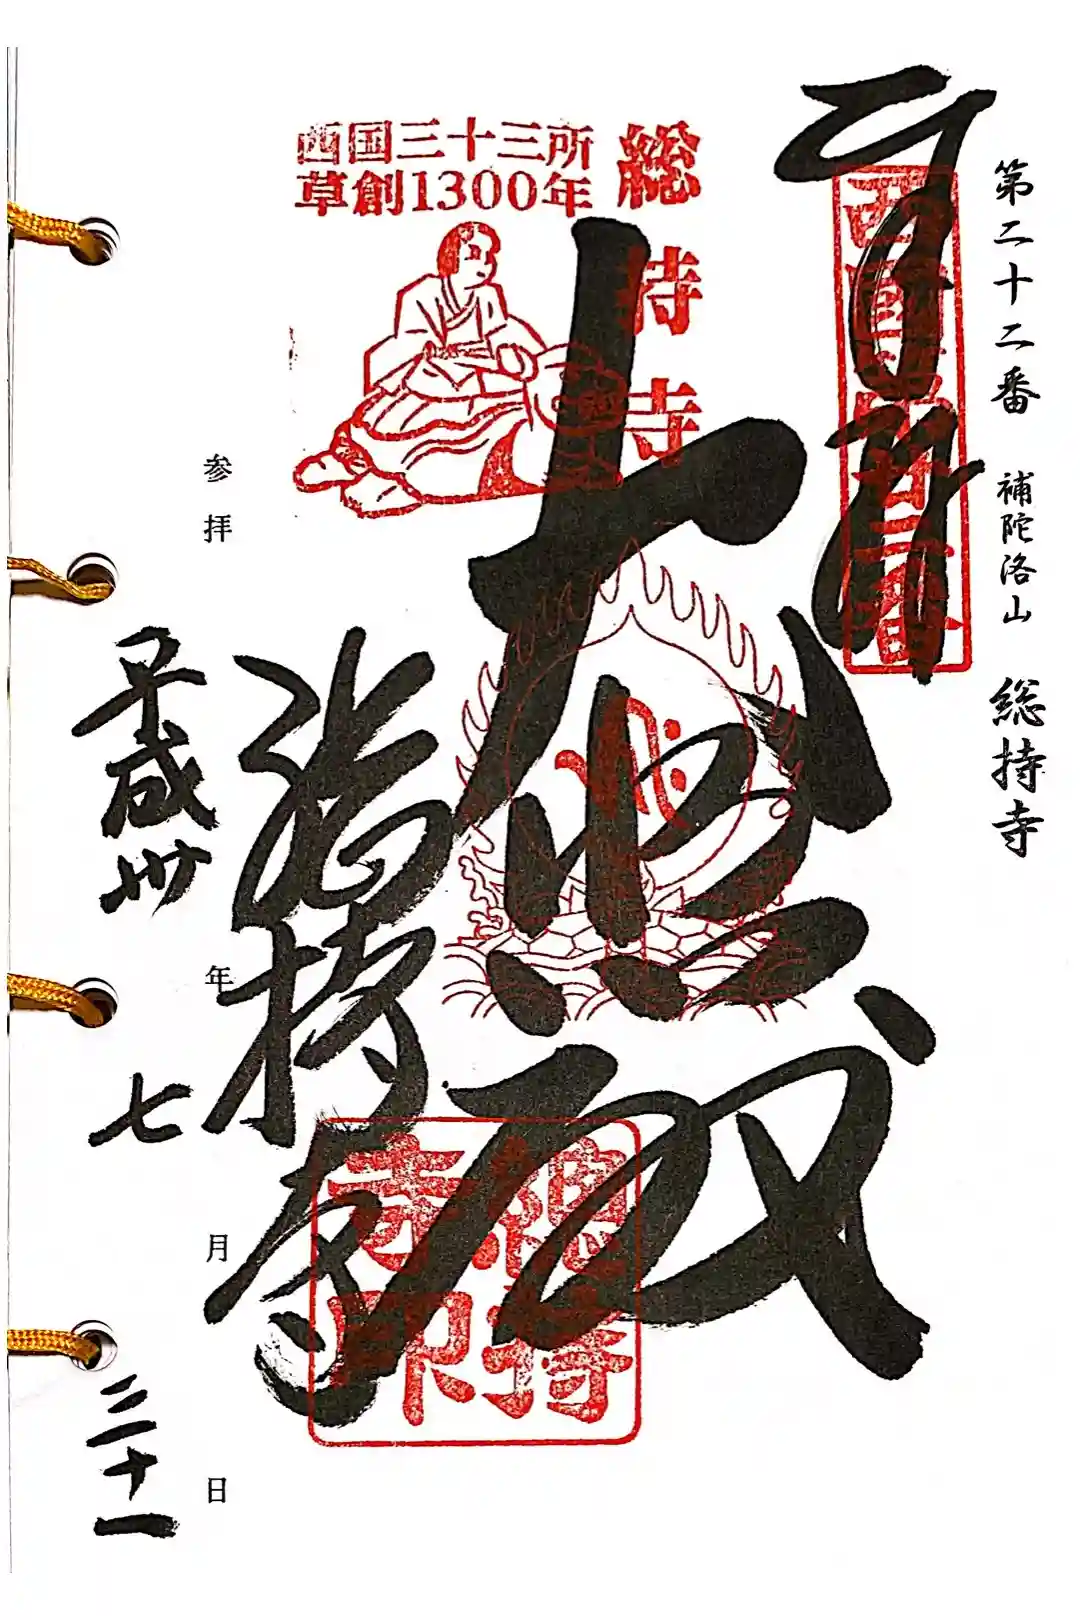 第二十二番 補陀洛山 総持寺
奉拝
西国第廿二番
総持寺
西国三十三所
草創1300年
大悲殿
総持寺
總持寺印
参拝
平成卅年七月三十一日